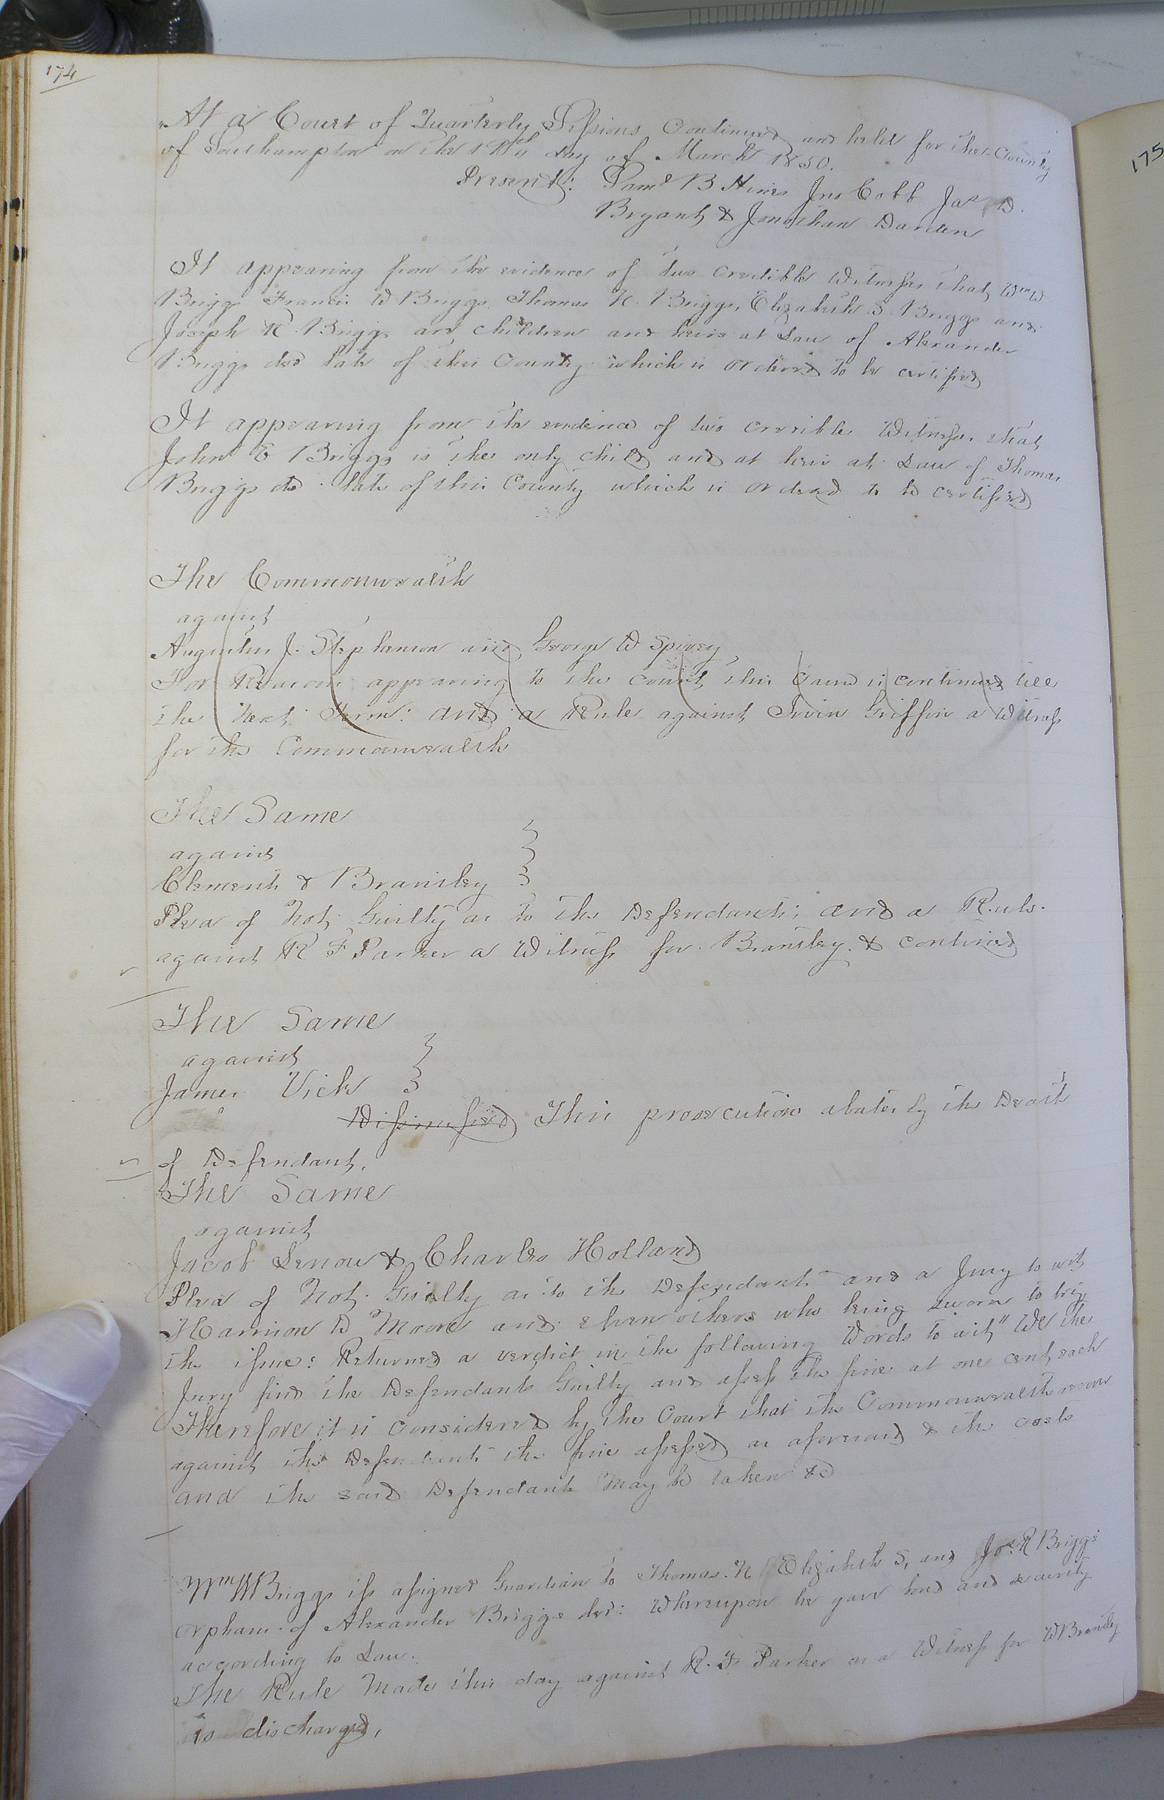 174
At a Court of Quarterly Sessions Continued and held for the County
of Southampton on the day of March 1850.
Present: Saml B Hines Jno Cobb Jas D.
Bryant & Jonathan Darden
It appearing from the evidence of two credible Witnesses that Wm W
Briggs Francis W Briggs, Thomas N. Briggs, Elizabeth S Briggs and
Joseph R Briggs are children and heirs at Law of Alexander
Briggs decd late of this County which is ordered to be certified
It appearing from the evidence of two credible Witnesses that
John E Briggs is the only child and at heir at Law of Thomas
Briggs dcd late of this County which is ordered to be certified
The Commonwealth
against
Augustus J. Stephenson and George W Spivey
For Reasons appearing to the Court this Cause is continued till
the Next Term: and a Rule against Irvin Griffin a Witness
for the Commonwealth
The Same
against
Clements & Brantley
Plea of Not Guilty as to the Defendants, and a Rule
against R F Parker a Witness for Brantley & continued
The Same
against
James Vick
Dismissed This prosecution abates by the Death
of Defendant.
The Same
against
Jacob Lenow & Charles Holland
Plea of Not Guilty as to the Defendants and a Jury to wit
Harrison W Moore and eleven others who being sworn to try
the issue: Returned a verdict in the following Words to wit" We the
Jury find the Defendants Guilty and assess the fine at one cent each
Therefore it is considered by the Court that the Commonwealth recover
against the Defendants the fine assessed as aforesaid & the costs
and the said Defendants may be taken &c
Wm W Briggs is assigned Guardian to Thomas. N Elizabeth S, and Jos. R Briggs
orphans of Alexander Briggs decd: Whereupon he gave bond and security
according to Law.
The Rule Made this day against R. F. Parker as a Witness for W Brantley
is discharged,
175